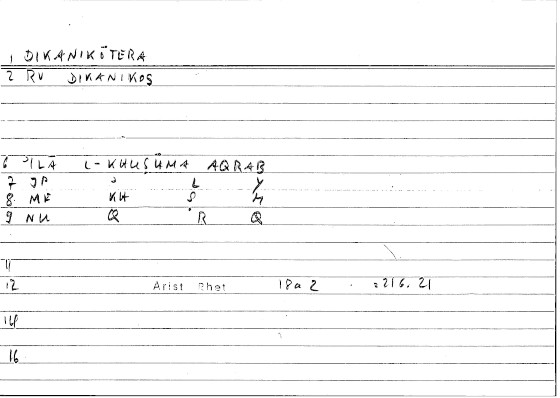 1 DIKANIKŌTERA
2 RV DIKANIKOS
6 ʾILĀ L-KHUṢŪMA AQRAB
7 JP ʾ L Y
8 ME KH Ṣ M
9 NU Q R Q
11
12 Arist Rhet 18a 2 = 216. 21
14
16